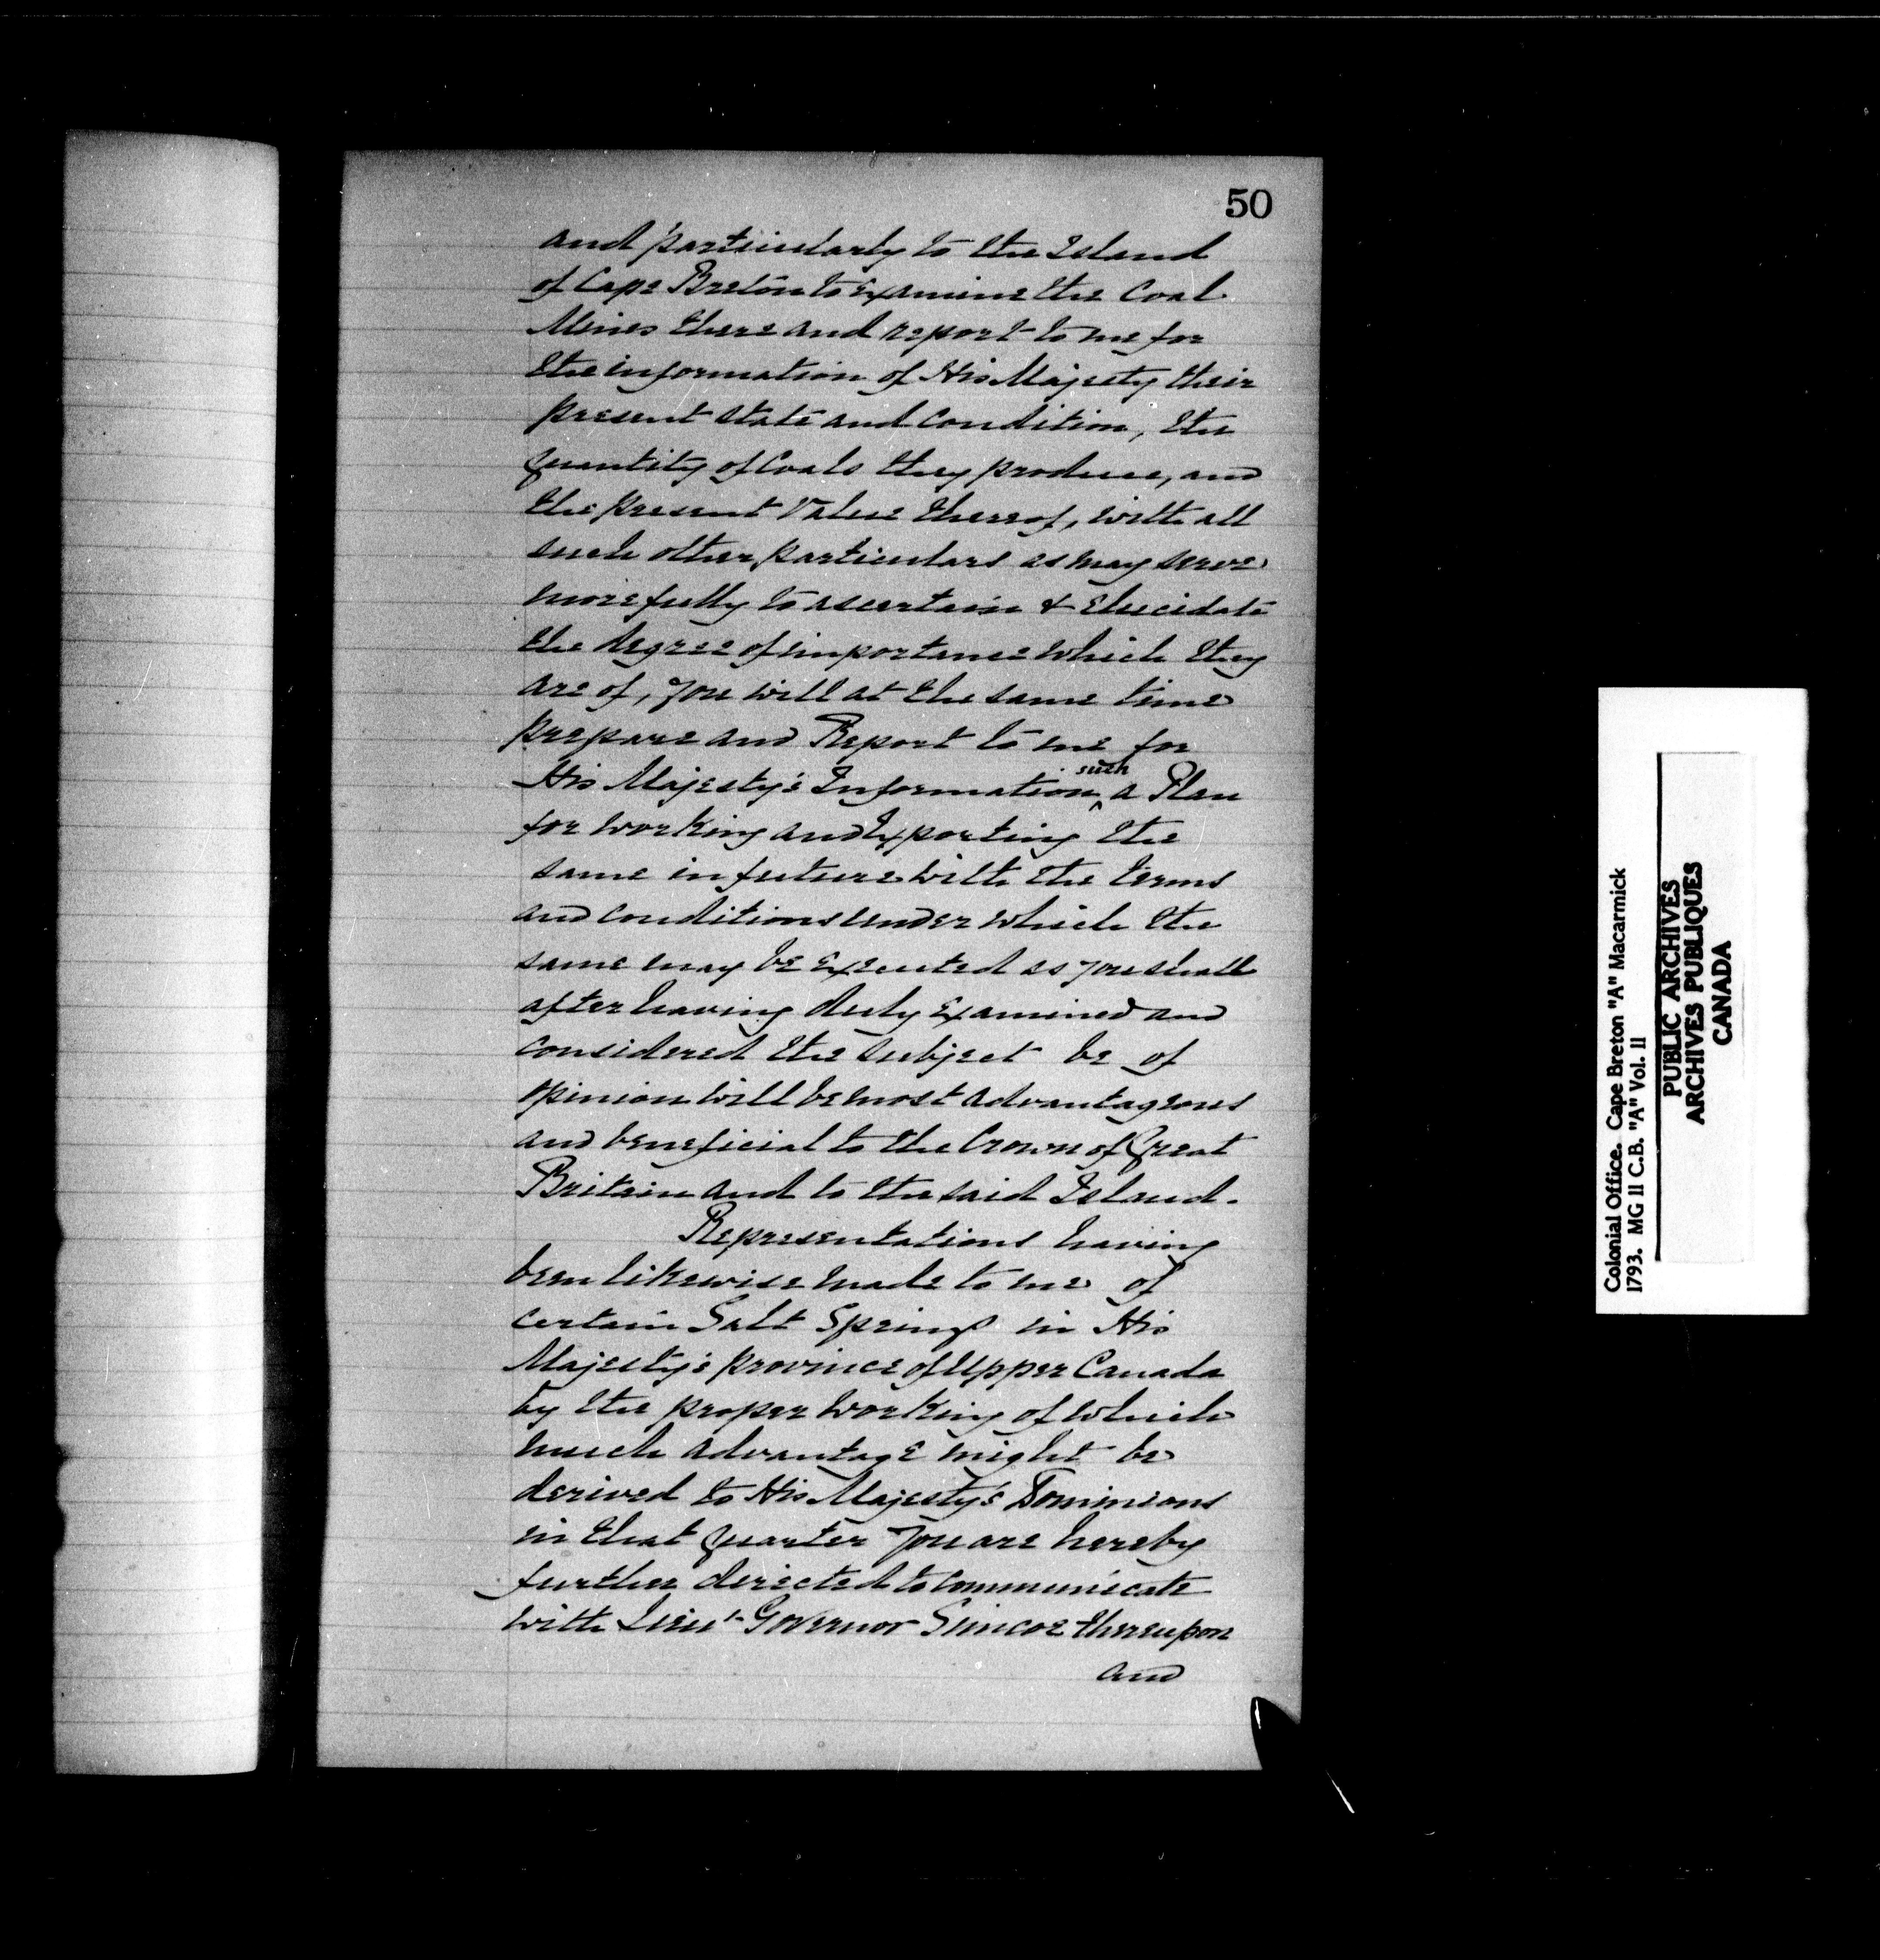 50
and particularly to the Island
of Cape Breton to Examine the Coal
Mines there and report to me for
the information of His Majesty their
present state and condition, the
quantity of Coals they produce, and
the present Value thereof, with all
such other particulars as may serve
more fully to ascertain & Elucidate
the degree of importance which they
are of, you will at the same time
prepare and Report to me for
His Majesty's Information such a Plan
for working and Exporting the
same in future with the terms
and conditions under which the
same may be Executed as you shall
after having duly Examined and
considered the subject be of
opinion will be most advantageous
and beneficial to the Crown of Great
Britain and to the said Island.
Representations having
been likewise made to me of
certain Salt Springs in His
Majesty's province of Upper Canada
by the proper working of which
much advantage might be
derived to His Majesty's Dominions
in that quarter you are hereby
further directed to communicate
with Lieut. Governor Simcoe thereupon
and
Colonial Office. Cape Breton "A" Macarmick
1793. MG II C.B. "A" Vol. II
PUBLIC ARCHIVES
ARCHIVES PUBLIQUES
CANADA